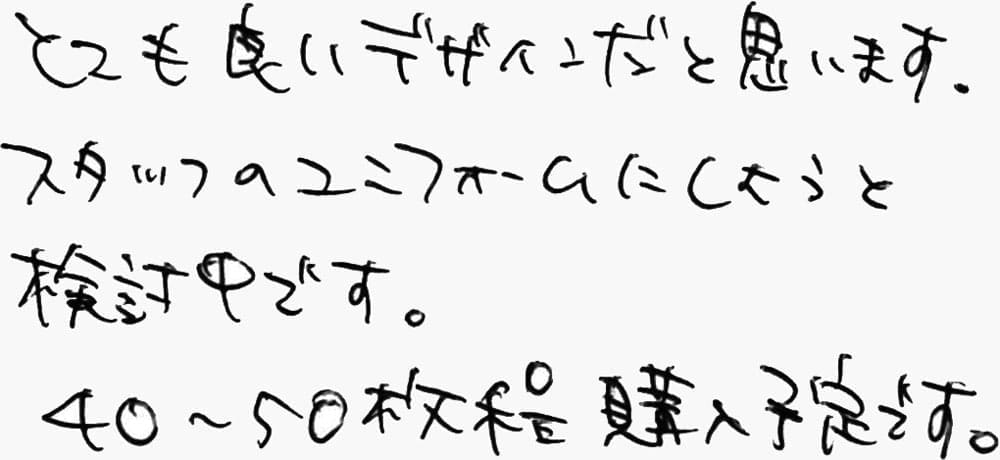 とても良いデザインだと思います。
スタッフのユニフォームにしようと
検討中です。
40～50枚程購入予定です。